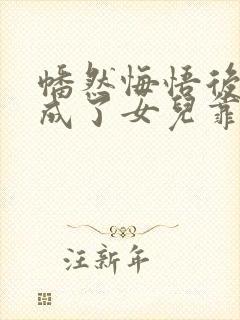 幡然悔悟後
成了女兒靠
汪新年